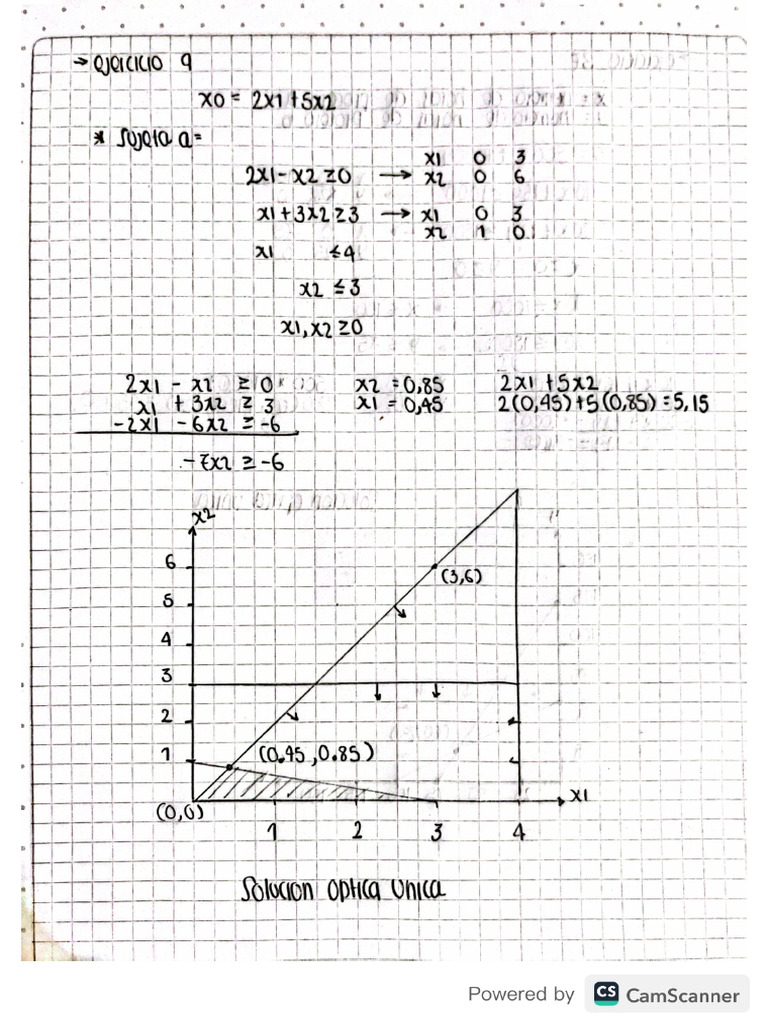 → ejercicio 9
x0 = 2x1 + 5x2
* Sujeta a=
x1 0 3
2x1 - x2 ≥ 0 → x2 0 6
x1 + 3x2 ≥ 3 → x1 0 3
x2 1 0
x1 ≤ 4
x2 ≤ 3
x1, x2 ≥ 0
2x1 - x2 ≥ 0 x2 = 0,85 2x1 + 5x2
x1 + 3x2 ≥ 3 x1 = 0,45 2(0,45) + 5(0,85) = 5,15
-2x1 - 6x2 ≥ -6
-7x2 ≥ -6
x2
6
(3,6)
5
4
3
2
1
(0.45, 0.85)
(0,0)
x1
1 2 3 4
Solucion optica unica
Powered by CS CamScanner